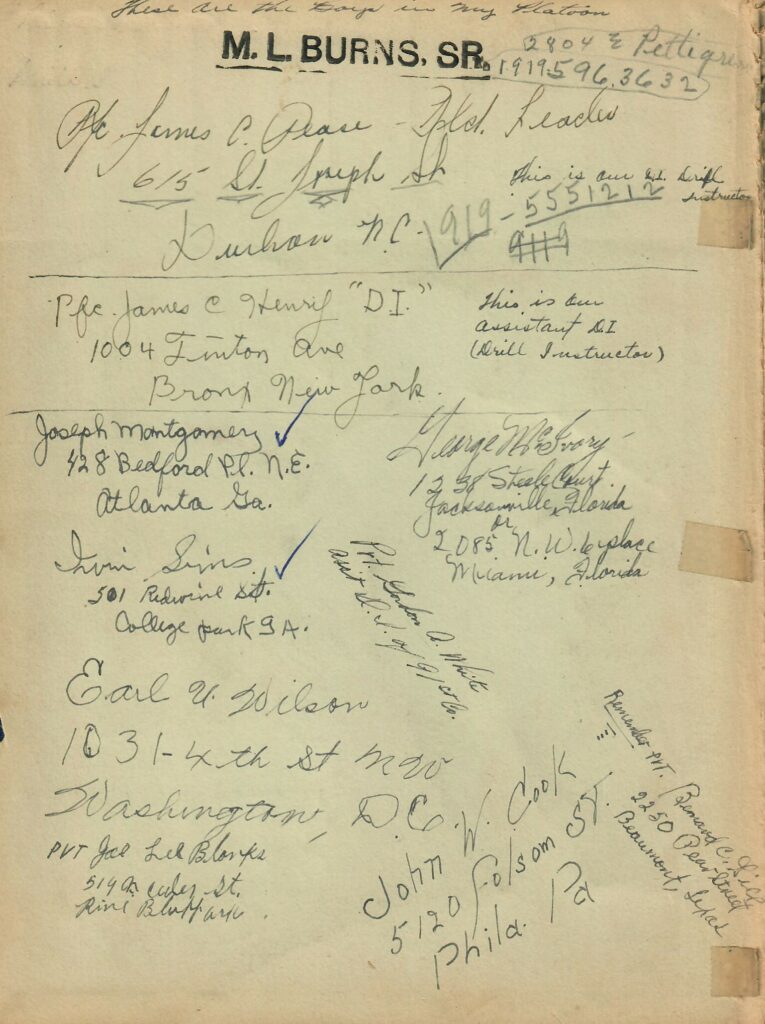 These are the Boys in my Platoon
M. L. BURNS, SR.
2804 E Pettigrew
1919.596.3632
Pfc. James C. Pease - Leader
615 St. Joseph St.
This is our D.I. Drill
Instructor
Durham N.C.
919-5551212
9119
Pfc. James C Henry "D.I."
1004 Tinton Ave
Bronx New York.
This is our
assistant DI
(Drill Instructor)
Joseph Montgomery
428 Bedford Pl. N.E.
Atlanta Ga.
George McIvory
1238 Steele Court.
Jacksonville, Florida
or
2085 N.W. 6 place
Miami, Florida
Irvin Sims.
501 Redwine St.
College park GA.
Pvt. Gordon A. White
ass't D.I. of 91st Co.
Earl U. Wilson
1031-4th St NW
Washington, D.C.
PVT Joe Lee Blanks
St.
Pine Bluff Ark.
John W. Cook
5120 Folsom ST.
Phila. Pa
Remember PVT. Bernard C.
2250 Pear Street
Beaumont, Texas